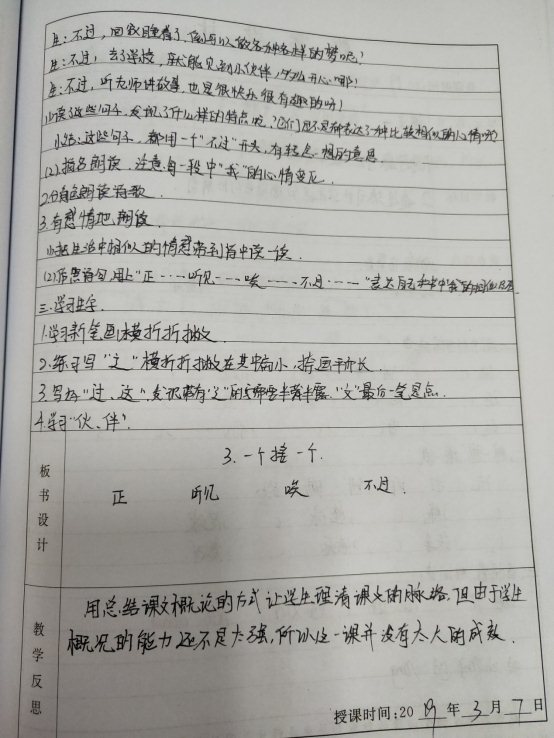 生:不过,回家睡着了,倒可以做各种各样的梦呢!
生:不过,去了学校,就能见到小伙伴,多么开心哪!
生:不过,听老师讲故事,也是很快乐很有趣的呀!
(1)读了这些句子,发现了什么样的特点呢?它们是不是都表达了一种比较相似的心情呢?
小结:这些句子,都用一个"不过"开头,有转念一想的意思
(2)指名朗读,注意每一段中"我"的心情变化.
2.分角色朗读诗歌.
3.有感情地朗读.
(1)把生活中相似的情感带到诗中读一读.
(2)仿照诗句,用上"正……听见……唉……不过……"表达自己和书中"我"的相似
三.学习生字.
1.学习新笔画横折折撇.
2.练习写"辶"横折折撇在其中偏小,捺画平长.
3.写好"过、这",发现带有"辶"的字都要半藏半露."文"最后一笔是点.
4.学习"伙、伴".
板书设计
3.一个接一个.
正 听见 唉 不过.
教学反思
用总结课文概论的方式让学生理清课文的脉络.但由于学生
概况的能力还不是太强,所以这一课并没有太大的成效.
授课时间:2019年3月7日